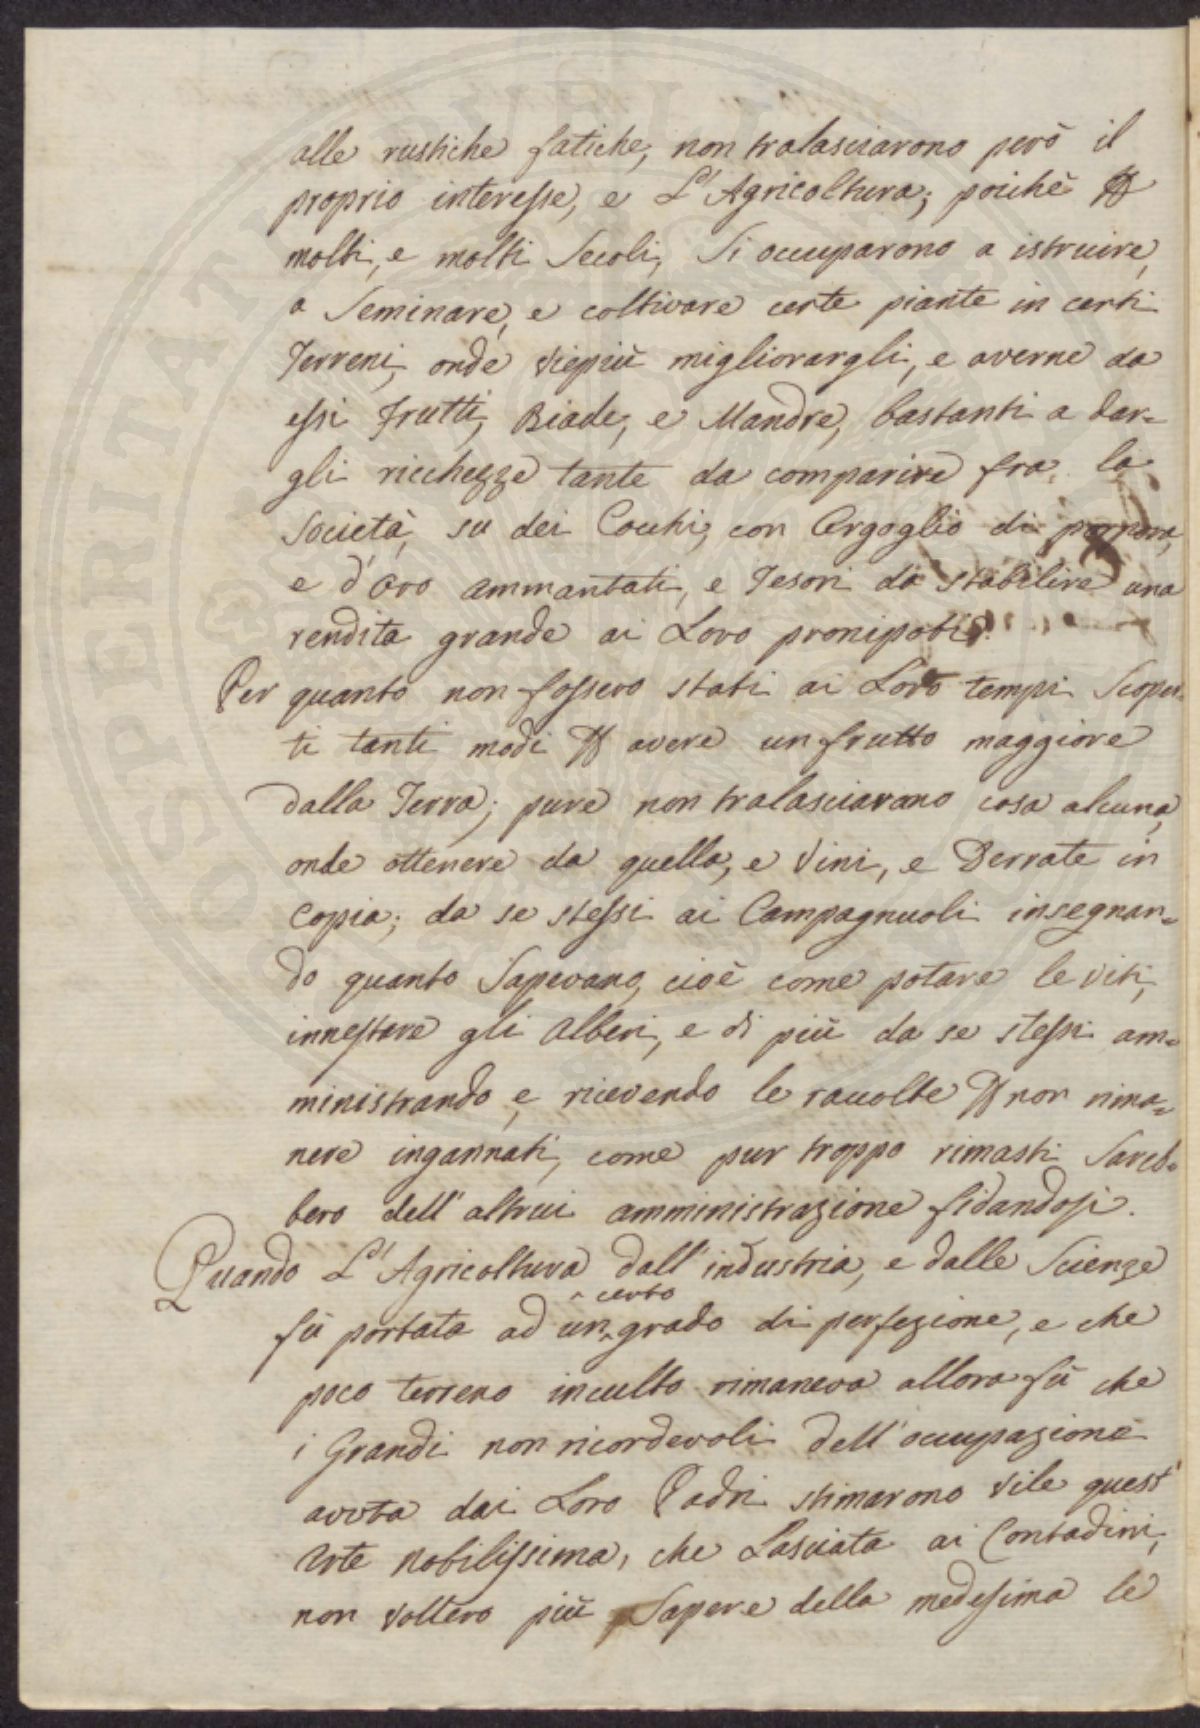 alle rustiche fatiche, non tralasciarono però il
proprio interesse, e L'Agricoltura; poichè
molti, e molti Secoli, Si occuparono a istruire,
a Seminare, e coltivare certe piante in certi
Terreni, onde viepiù migliorargli, e averne da
essi frutti, Biade, e Mandre, bastanti a dar=
gli ricchezze tante da comparire fra la
Società, su dei Cocchi, con Orgoglio di porpora,
e d'oro ammantati, e Tesori da stabilire una
rendita grande ai Loro pronipoti.
Per quanto non fossero stati ai Loro tempi Scoper=
ti tanti modi avere un frutto maggiore
dalla Terra; pure non tralasciavano cosa alcuna,
onde ottenere da quella, e Vini, e Derrate in
Copia; da se stessi ai Campagnuoli insegnan=
do quanto Sapevano, cioè come potare le viti,
innestare gli Alberi, e di più da se stessi am=
ministrando, e ricevendo le raccolte non rima=
nere ingannati, come pur troppo rimasti Sareb=
bero dell'altrui amministrazione fidandosi.
Quando L'Agricoltura dall'industria, e dalle Scienze
certo
fù portata ad un grado di perfezione, e che
poco terreno inculto rimaneva allora fù che
i Grandi non ricordevoli dell'occupazione
avuta dai Loro Padri stimarono vile quest'
Arte nobilissima, che Lasciata ai Contadini,
non voltero più Sapere della medesima le
SOSPERITATI PVBLICAE AVGENDAE